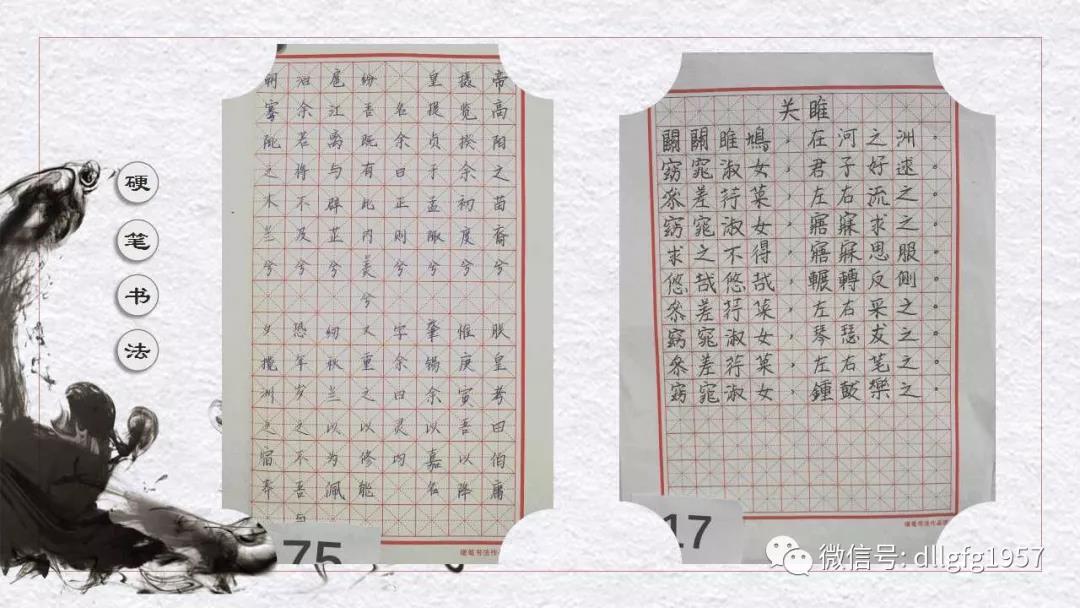 硬笔书法
帝高阳之苗裔兮朕皇考曰伯庸
摄览揆余初度兮惟庚寅吾以降
皇提贞于孟陬兮肇锡余以嘉名
名余曰正则兮字余曰灵均
纷吾既有此内美兮又重之以修能
扈江离与辟芷兮纫秋兰以为佩
汩余若将不及兮恐年岁之不吾与
朝搴阰之木兰兮夕揽洲之宿莽
75
硬笔书法作品
关雎
關關雎鳩，在河之洲。
窈窕淑女，君子好逑。
參差荇菜，左右流之。
窈窕淑女，寤寐求之。
求之不得，寤寐思服。
悠哉悠哉，輾轉反側。
參差荇菜，左右采之。
窈窕淑女，琴瑟友之。
參差荇菜，左右笔之。
窈窕淑女，鍾鼓樂之。
17
硬笔书法作品
微信号: dllgfg1957